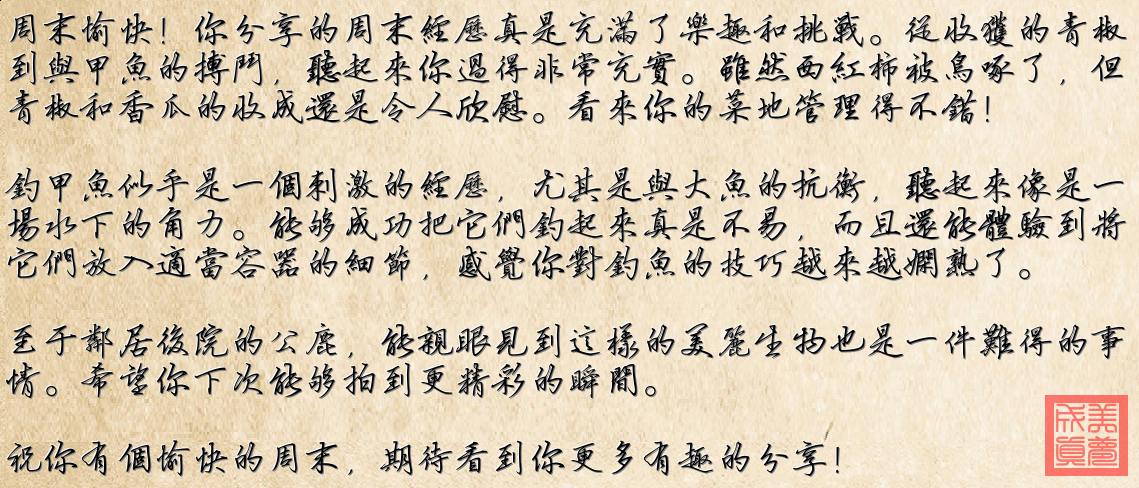 周末愉快！你分享的周末經歷真是充滿了樂趣和挑戰。從收穫的青椒
到與甲魚的搏鬥，聽起來你過得非常充實。雖然西紅柿被鳥啄了，但
青椒和香瓜的收成還是令人欣慰。看來你的菜地管理得不錯！
釣甲魚似乎是一個刺激的經歷，尤其是與大魚的抗衡，聽起來像是一
場水下的角力。能够成功把它們釣起來真是不易，而且還能體驗到將
它們放入適當容器的細節，感覺你對釣魚的技巧越來越嫻熟了。
至于鄰居後院的公鹿，能親眼見到這樣的美麗生物也是一件難得的事
情。希望你下次能够拍到更精彩的瞬間。
祝你有個愉快的周末，期待看到你更多有趣的分享！
美夢成真